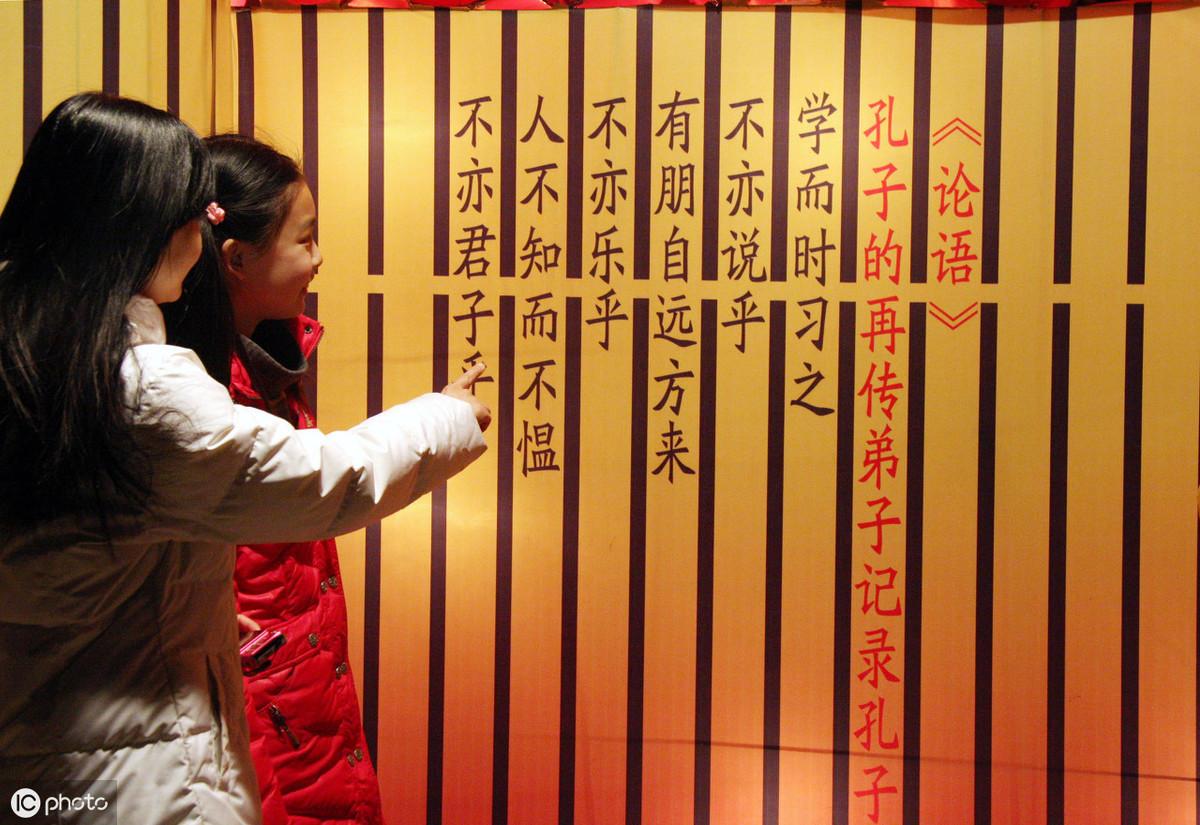 《论语》
孔子的再传弟子记录孔子
学而时习之
不亦说乎
有朋自远方来
不亦乐乎
人不知而不愠
不亦君子乎
IC photo